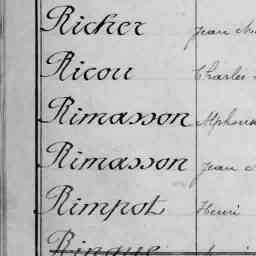 Richer Jean
Ricou Charles
Rimasson Alphonse
Rimasson Jean
Rimpot Henri
Rinque